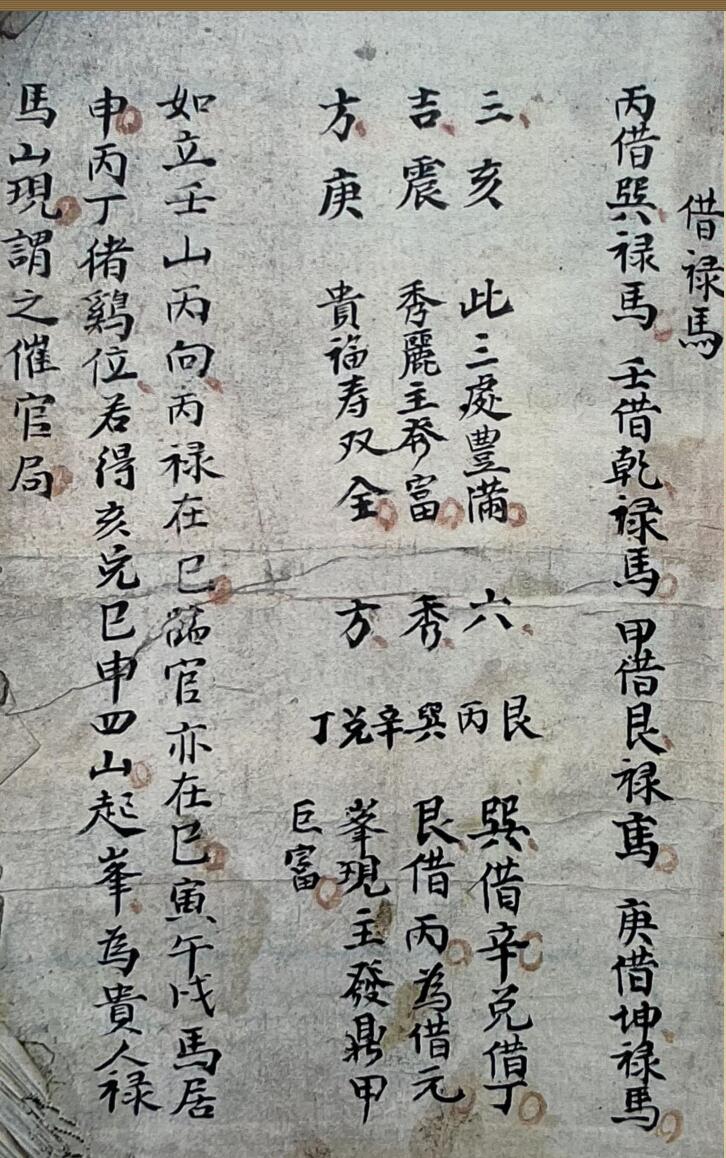 借祿馬
丙借巽祿馬 壬借乾祿馬 甲借艮祿馬 庚借坤祿馬
三吉方
亥震庚
此三處豊滿
秀麗主發富
貴福寿双全
六秀方
艮丙巽辛兌丁
巽借辛兌借丁
艮借丙為借元
峯現主發鼎甲
巨富
如立壬山丙向丙祿在巳臨官亦在巳寅午戌馬居
申丙丁猪鷄位若得亥兌巳申四山起峯為貴人祿
馬山現謂之催官局